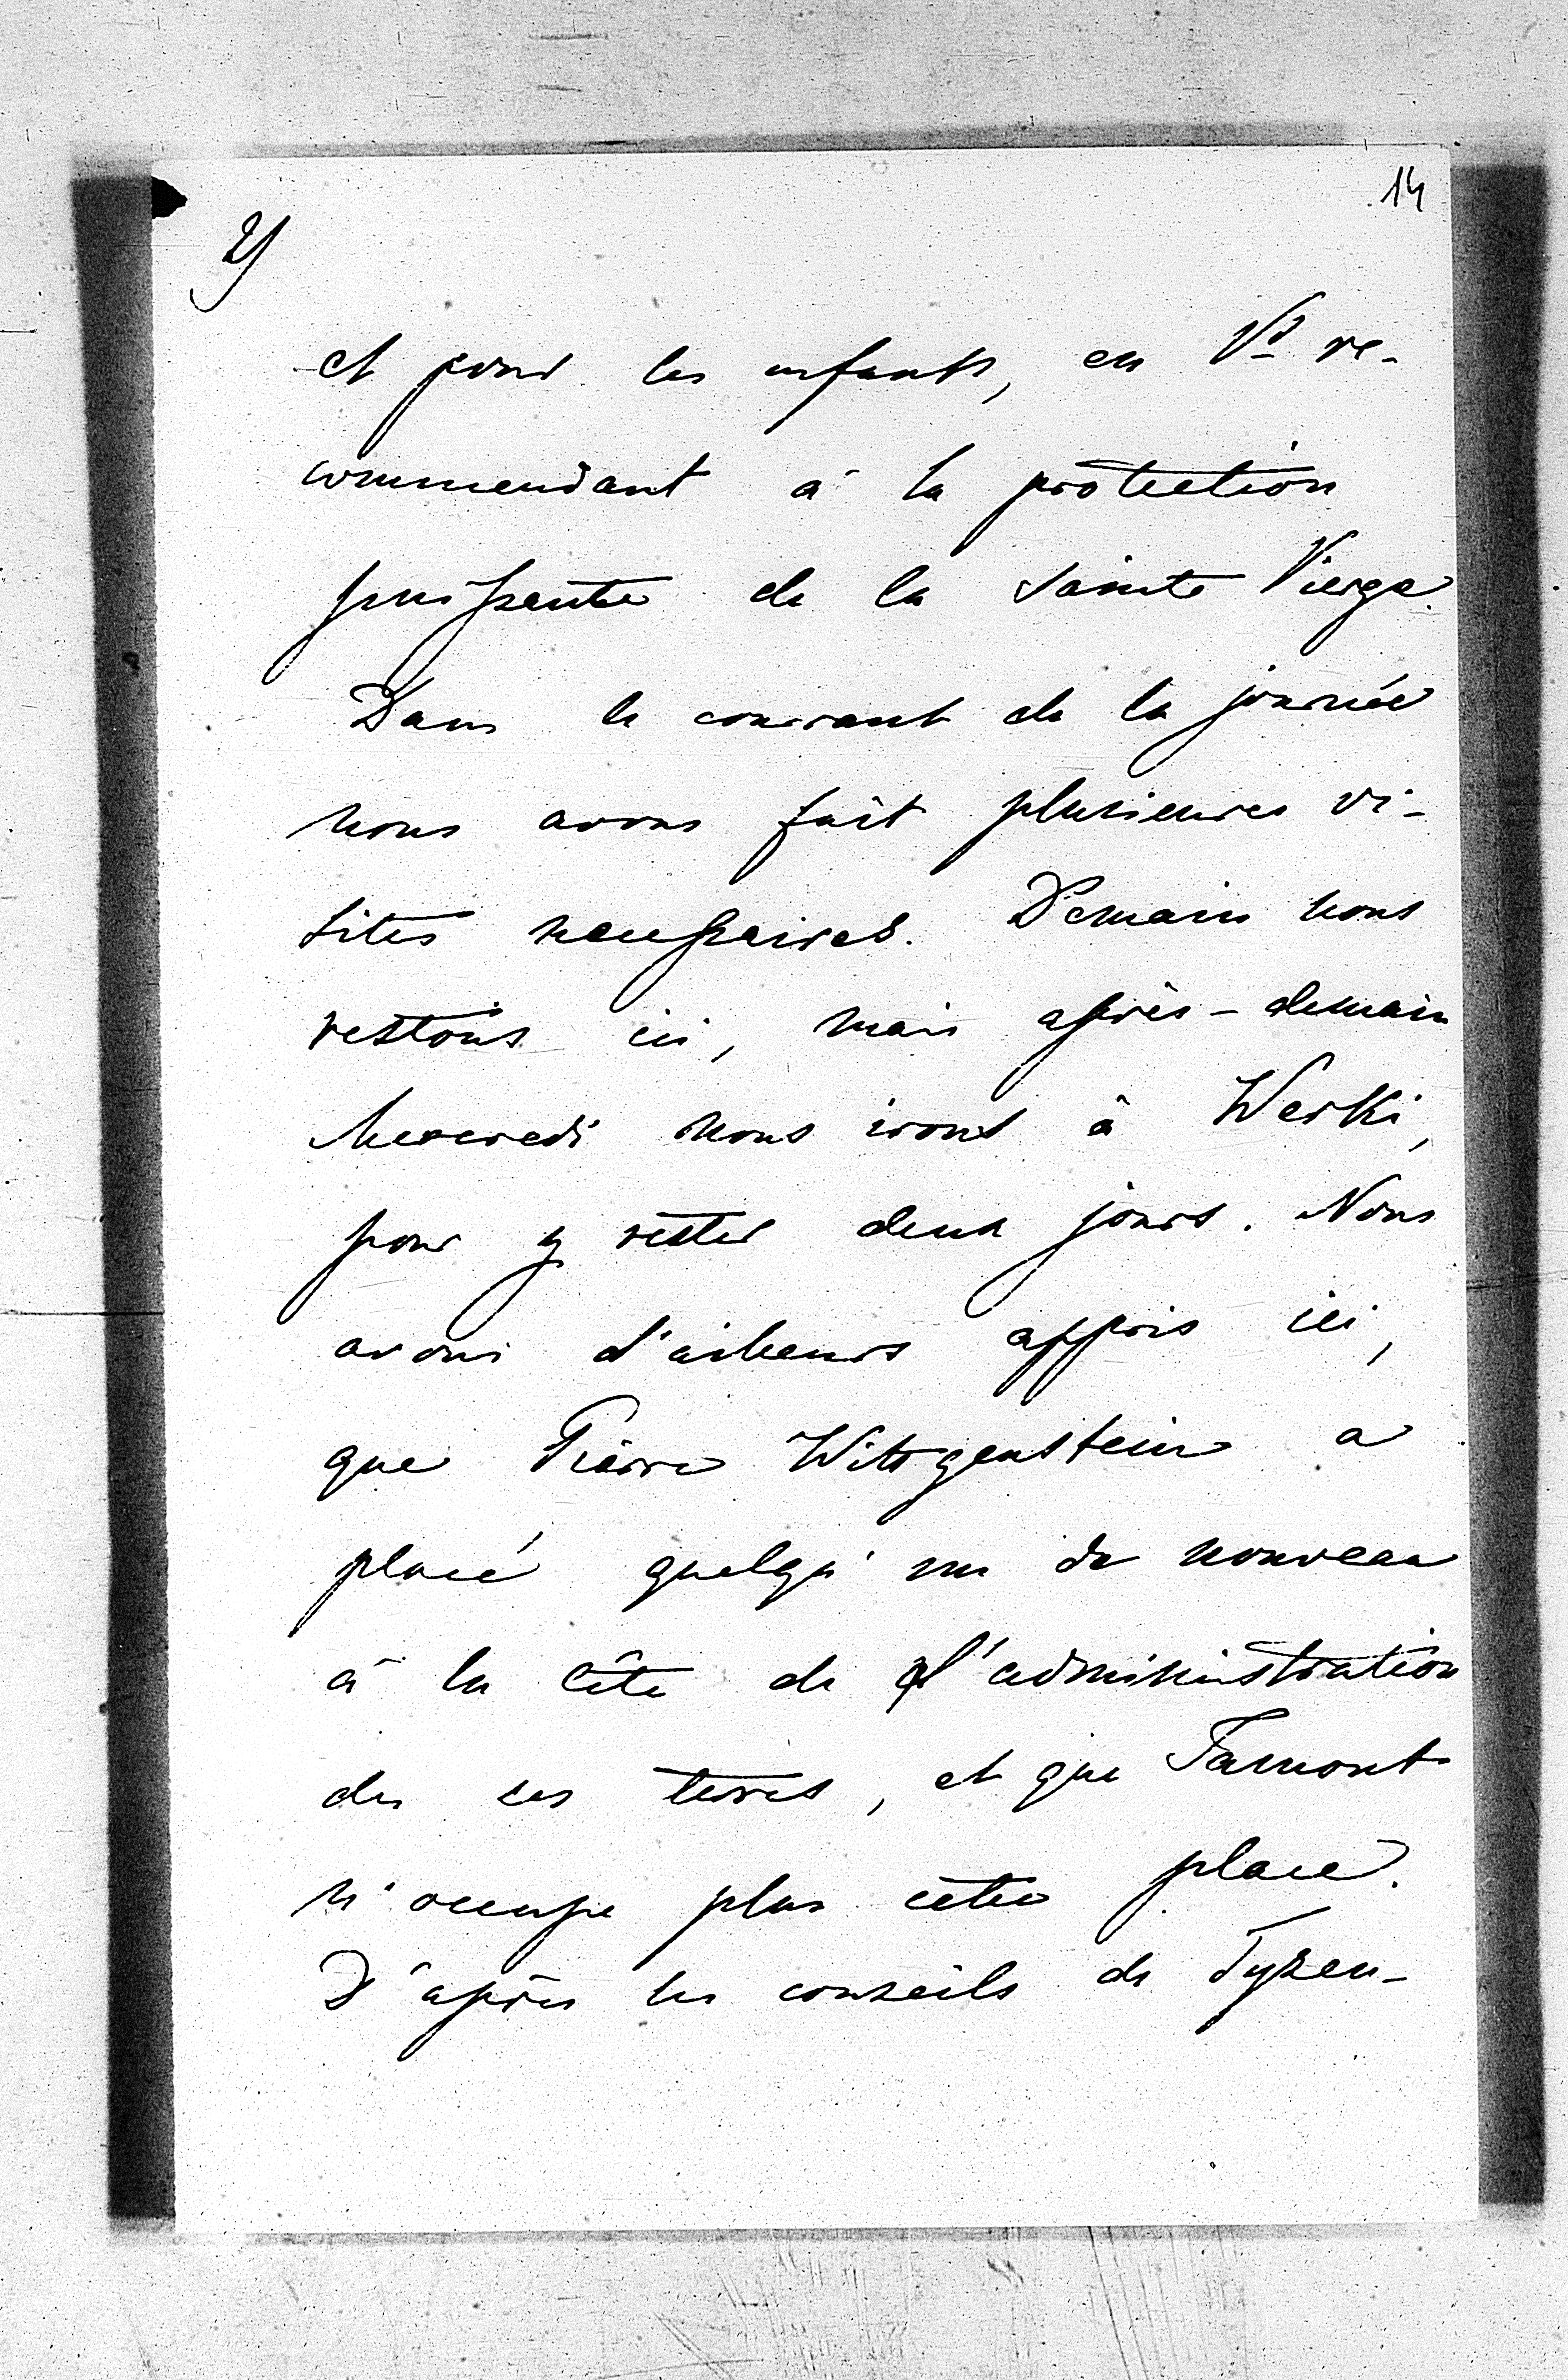 14
2)
et pour les enfants, en Vs re-
commendant à la protection
puissante de la Sainte Vierge.
Dans le courant de la journée
nous avons fait plusieures vi-
sites necessaires. Demain nous
restons ici, mais après-demain
Mercredi nous irons à Werki,
pour y rester deux jours. Nous
avons d'ailleurs appris ici,
que Pierre Wittgenstein a
placé quelqu'un de nouveau
à la tête de l'administration
de ses terres, et que Jamont
n'occupe plus cette place.
D'après les conseils de Tyzen-